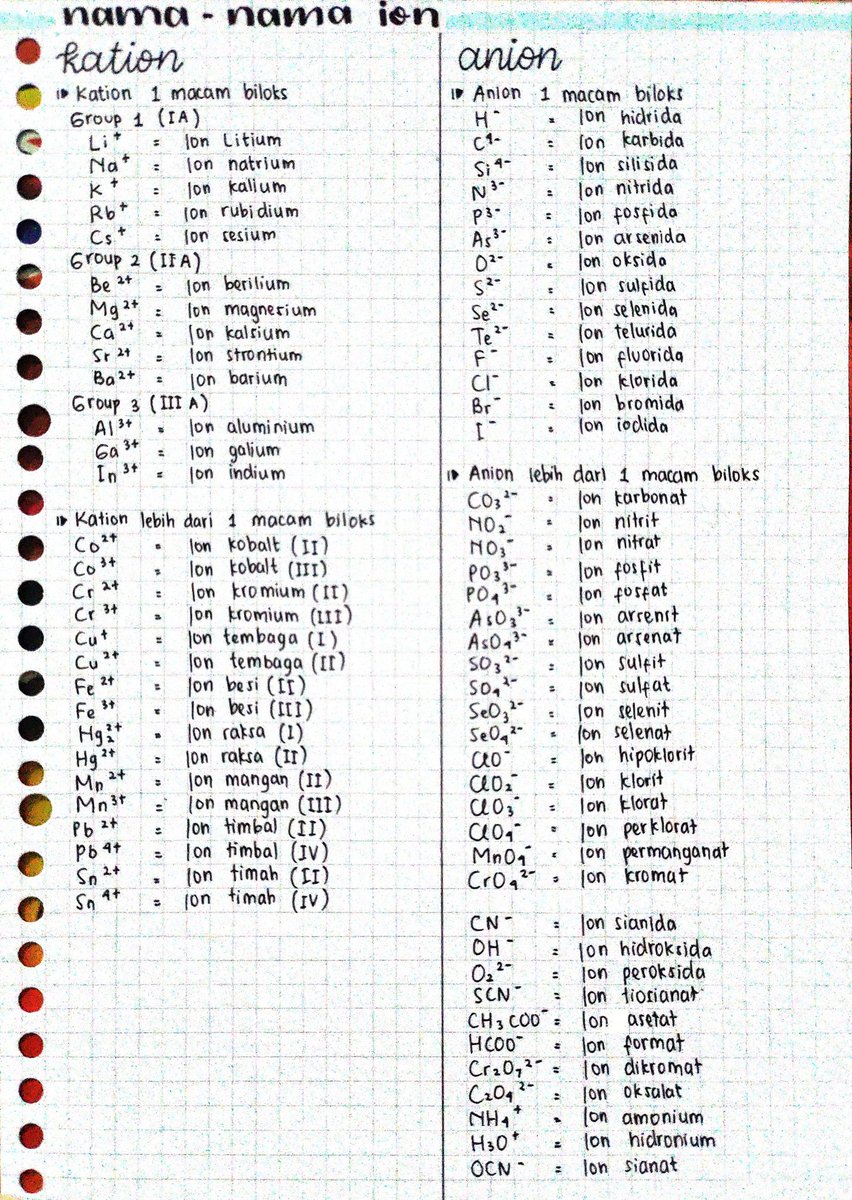 nama - nama ion
kation
Kation 1 macam biloks
Group 1 (IA)
Li⁺ = Ion Litium
Na⁺ = Ion natrium
K⁺ = Ion kalium
Rb⁺ = Ion rubidium
Cs⁺ = Ion sesium
Group 2 (IIA)
Be²⁺ = Ion berilium
Mg²⁺ = Ion magnesium
Ca²⁺ = Ion kalsium
Sr²⁺ = Ion strontium
Ba²⁺ = Ion barium
Group 3 (IIIA)
Al³⁺ = Ion aluminium
Ga³⁺ = Ion galium
In³⁺ = Ion indium
Kation lebih dari 1 macam biloks
Co²⁺ = Ion kobalt (II)
Co³⁺ = Ion kobalt (III)
Cr²⁺ = Ion kromium (II)
Cr³⁺ = Ion kromium (III)
Cu⁺ = Ion tembaga (I)
Cu²⁺ = Ion tembaga (II)
Fe²⁺ = Ion besi (II)
Fe³⁺ = Ion besi (III)
Hg₂²⁺ = Ion raksa (I)
Hg²⁺ = Ion raksa (II)
Mn²⁺ = Ion mangan (II)
Mn³⁺ = Ion mangan (III)
Pb²⁺ = Ion timbal (II)
Pb⁴⁺ = Ion timbal (IV)
Sn²⁺ = Ion timah (II)
Sn⁴⁺ = Ion timah (IV)
anion
Anion 1 macam biloks
H⁻ = Ion hidrida
C⁴⁻ = Ion karbida
Si⁴⁻ = Ion silisida
N³⁻ = Ion nitrida
P³⁻ = Ion fosfida
As³⁻ = Ion arsenida
O²⁻ = Ion oksida
S²⁻ = Ion sulfida
Se²⁻ = Ion selenida
Te²⁻ = Ion telurida
F⁻ = Ion fluorida
Cl⁻ = Ion klorida
Br⁻ = Ion bromida
I⁻ = Ion iodida
Anion lebih dari 1 macam biloks
CO₃²⁻ = Ion karbonat
NO₂⁻ = Ion nitrit
NO₃⁻ = Ion nitrat
PO₃³⁻ = Ion fosfit
PO₄³⁻ = Ion fosfat
AsO₃³⁻ = Ion arsenit
AsO₄³⁻ = Ion arsenat
SO₃²⁻ = Ion sulfit
SO₄²⁻ = Ion sulfat
SeO₃²⁻ = Ion selenit
SeO₄²⁻ = Ion selenat
ClO⁻ = Ion hipoklorit
ClO₂⁻ = Ion klorit
ClO₃⁻ = Ion klorat
ClO₄⁻ = Ion perklorat
MnO₄⁻ = Ion permanganat
CrO₄²⁻ = Ion kromat
CN⁻ = Ion sianida
OH⁻ = Ion hidroksida
O₂²⁻ = Ion peroksida
SCN⁻ = Ion tiosianat
CH₃COO⁻ = Ion asetat
HCOO⁻ = Ion format
Cr₂O₇²⁻ = Ion dikromat
C₂O₄²⁻ = Ion oksalat
NH₄⁺ = Ion amonium
H₃O⁺ = Ion hidronium
OCN⁻ = Ion sianat